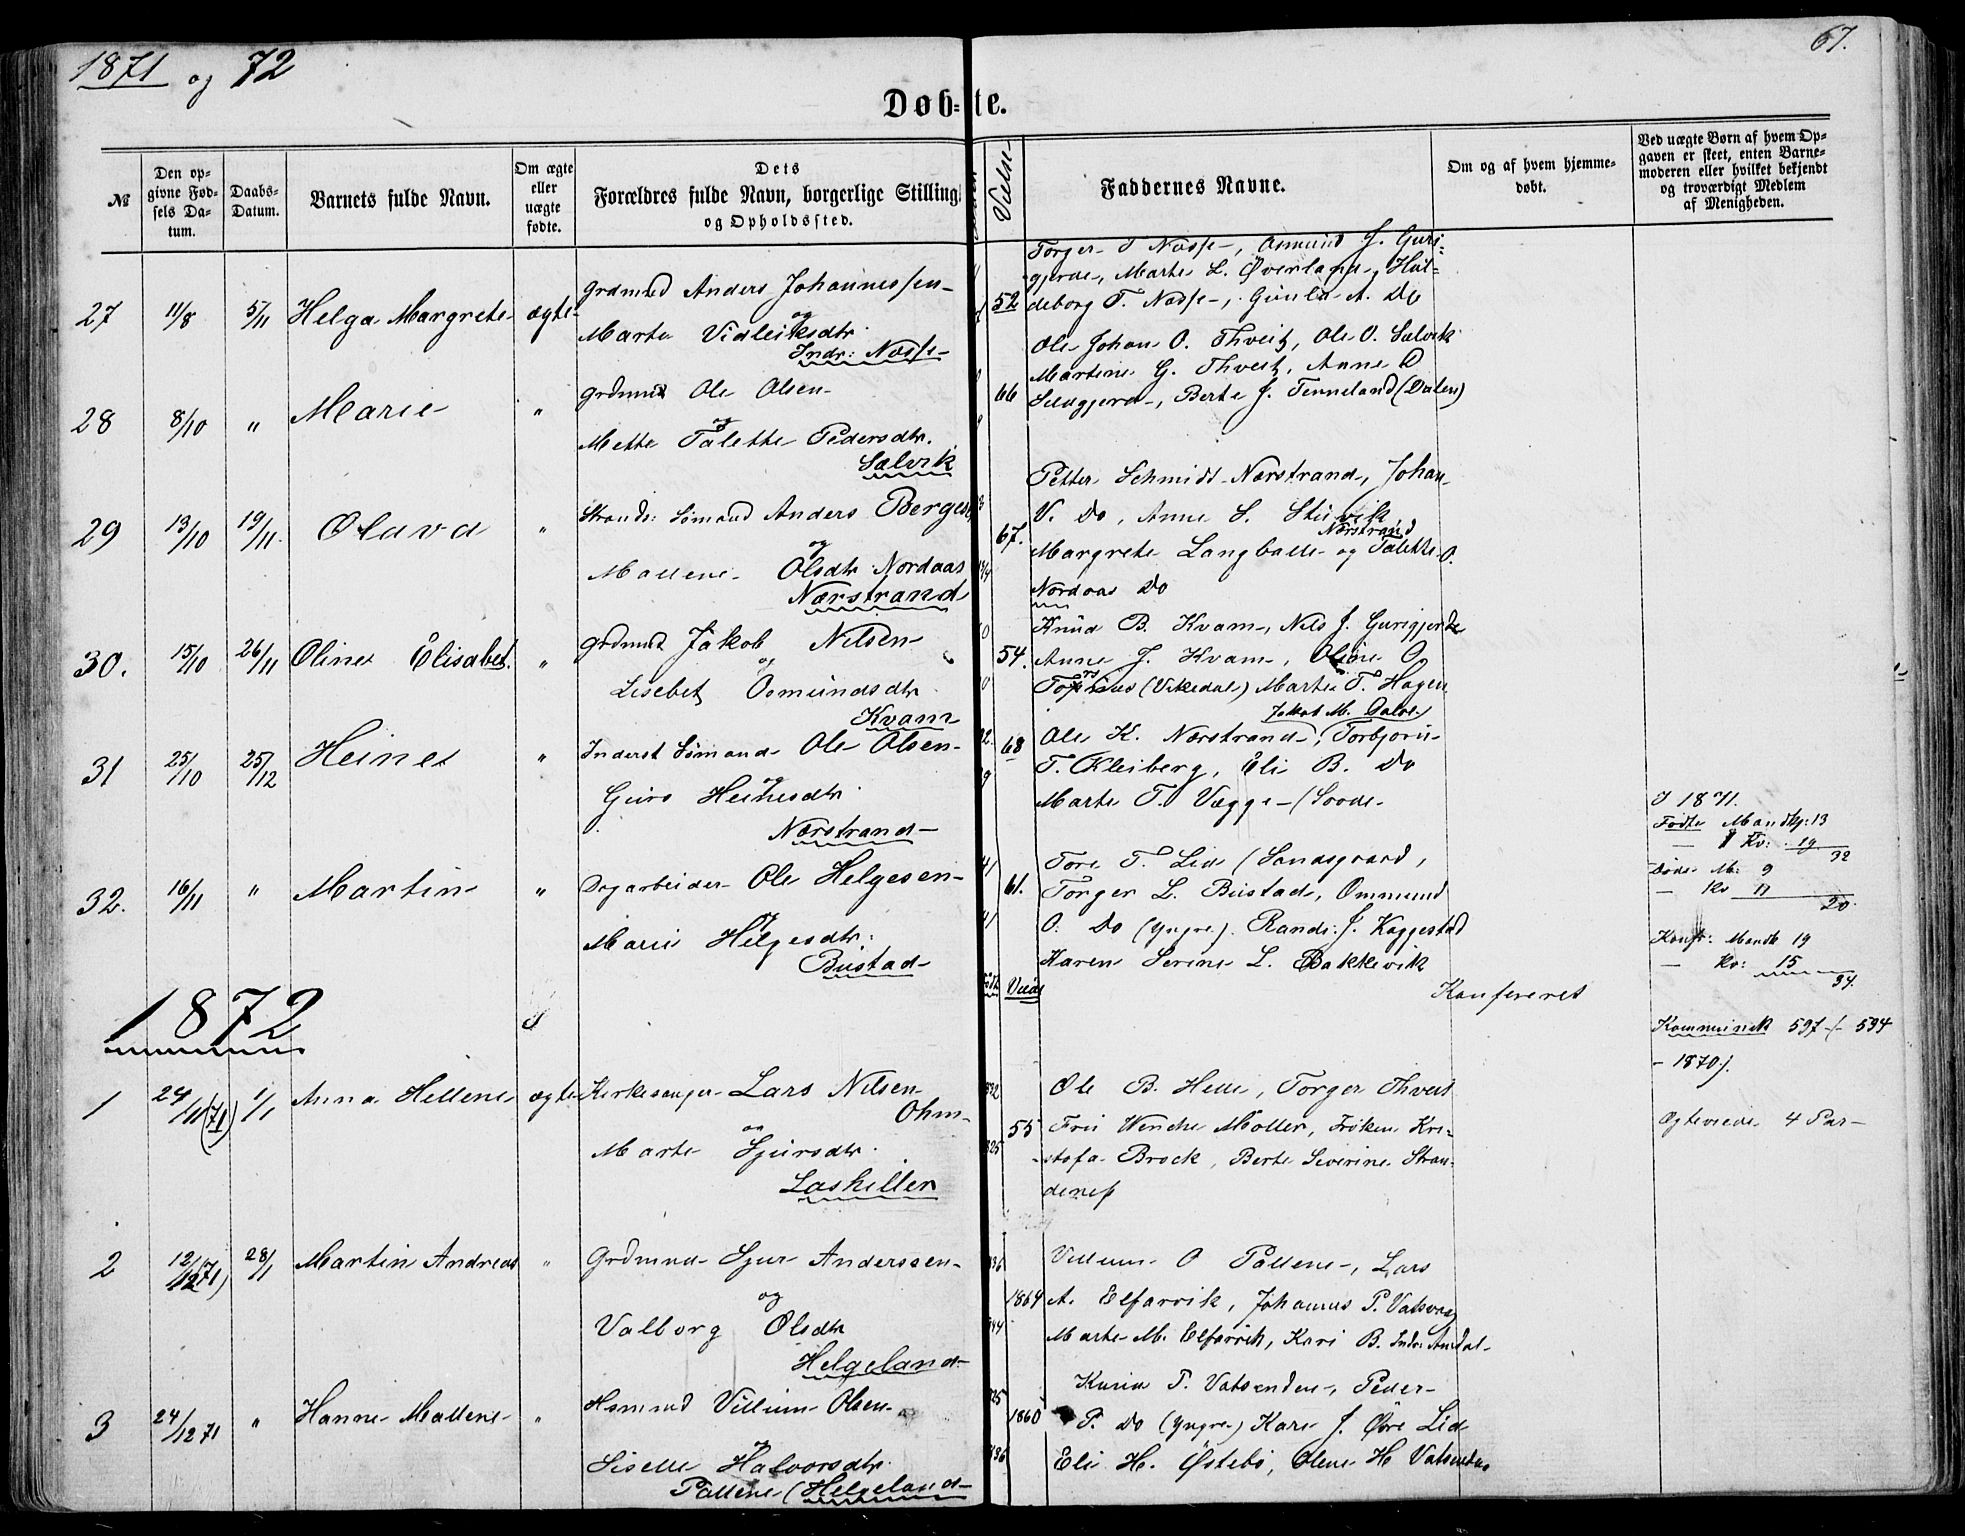 1871 og 72
67.
Døb-te.
№
Den op-
givne Fød-
sels Da-
tum.
Daabs-
Datum.
Barnets fulde Navn.
Om ægte
eller
uægte
fødte.
Dets
Forældres fulde Navn, borgerlige Stilling
og Opholdssted.
Fadderes Navne.
Om og af hvem hjemme-
døbt.
Ved uægte Børn af hvem Op-
gaven er skeet, enten Barne-
moderen eller hvilket bekjendt
og troværdigt Medlem
af Menigheden.
27 11/8 5/11 Helga Margrete ægte
Grdmnd Anders Johannessen
og
Marta Vidleiksdtr.
Indr: Næsse
52
Torger Næsse, Asmund J. Guri-
gjerde, Marte L. Øverland, Hal-
deborg T. Næsse, Gunla A. Do
28 8/10 " Marie "
Grdmnd Ole Olsen
og
Mette Talette Pedersdtr.
Sælvik
66
Ole Johan O. Thveit, Ole O. Sælvik
Martine G. Thveit, Anne O
Berte J. Tenneland (Dalen)
29 13/10 19/11 Olava "
Strands: Sømand Anders Berges
og
Mallene Olsdtr Nordaas
Nærstrand
67.
Petter Schmidt Nærstrand, Johan
V. Do, Anne S. Stuvik
Nærstrand
Margrete Langballe og Talette O.
Nordaas Do
30. 15/10 26/11 Oline Elisabet. "
Grdmnd Jakob Nilsen
og
Lisebet Osmundsdtr
Kvam
54.
Knud B. Kvam, Nils J. Gurigjerde
Anne J. Kvam, Oline O
(Vikedal) Marte T. Hagen
31 25/10 25/12 Heine "
Inderst Sømand Ole Olsen
og
Guro Heinesdtr.
Nærstrand
68
Jakob M. Dalve
Ole K. Nærstrand, Torbjørn
T. Kleiberg, Eli B. Do
Marte T. Vægge (Soode
32. 16/11 " Martin "
Dagarbeider Ole Helgesen
og
Marie Helgesdtr:
Bustad
61.
Tore T. Lid (Sandsgaard,
Torger L. Bustad, Ommund
O. Do (yngre). Randi J. Kaggestad
Karen Serine L. Bakkevik
I 1871.
Fødte Mandkj: 13
— Kv: 19
32
Døde M: 9
— Kv 11
20.
Konfr: Mandk 19
— Kv: 15
34.
Konfereret
Kommunik 597 /- 594
- 1870/.
Ægteviede 4 Par
1872
1 24/11 (71) 1/1 Anna Hellene ægte
Kirkesanger Lars Nilsen
Ohm
og
Marte Sjursdtr.
Laskillen
55
Ole B. Helle, Torger Thveit
Fru Wenche Møller, Frøken Kri-
stofa Brock, Berte Severine Stran-
denes
2 12/12 (71) 28/1 Martin Andreas "
Grdmnd Sjur Anderssen
og
Valborg Olsdtr
Helgeland
1864
Villum O Pallene, Lars
A. Elfarvik, Johannes P. Vatsvaag
Marte M. Elfarvik, Kari B. Indr: Amdal
3 24/12 71 " Hanne Mallene "
Hsmnd Villum Olsen
og
Siselle Halvorsdtr.
Pallene (Helgeland
1860
P. Vatsenden, Peder
P. Do (yngre) Kari J. Øvre Lid
Eli H. Østebø, Olene H Vatsenden